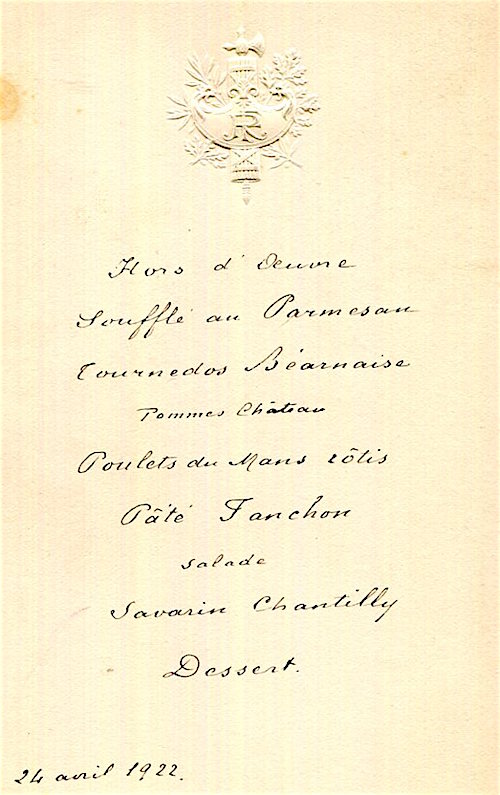 RF
Hors d'Oeuvre
Soufflé au Parmesan
Tournedos Béarnaise
Pommes Château
Poulets du Mans rôtis
Pâté Fanchon
Salade
Savarin Chantilly
Dessert.
24 avril 1922.